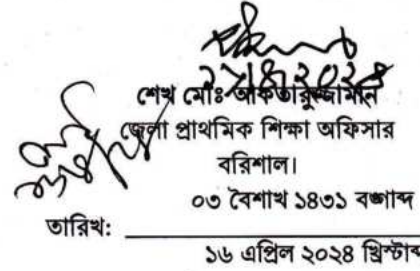 ২৮/৪/২০২৪
শেখ মোঃ আকতারুজ্জামান
জেলা প্রাথমিক শিক্ষা অফিসার
বরিশাল।
০৩ বৈশাখ ১৪৩১ বঙ্গাব্দ
তারিখ:
১৬ এপ্রিল ২০২৪ খ্রিস্টাব্